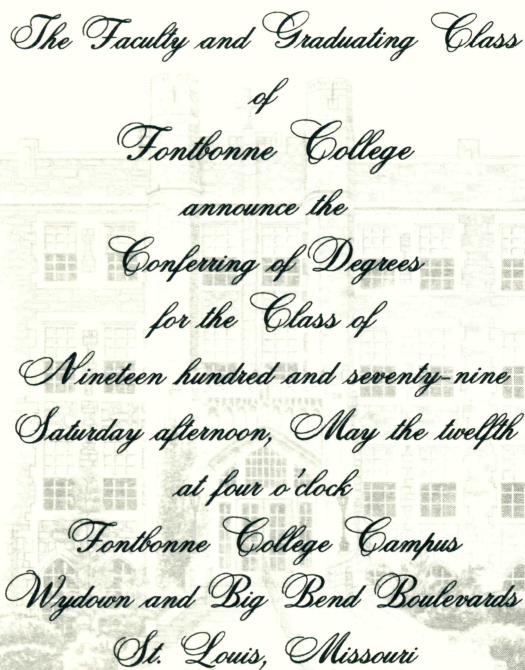 The Faculty and Graduating Class
of
Fontbonne College
announce the
Conferring of Degrees
for the Class of
Nineteen hundred and seventy-nine
Saturday afternoon, May the twelfth
at four o'clock
Fontbonne College Campus
Wydown and Big Bend Boulevards
St. Louis, Missouri